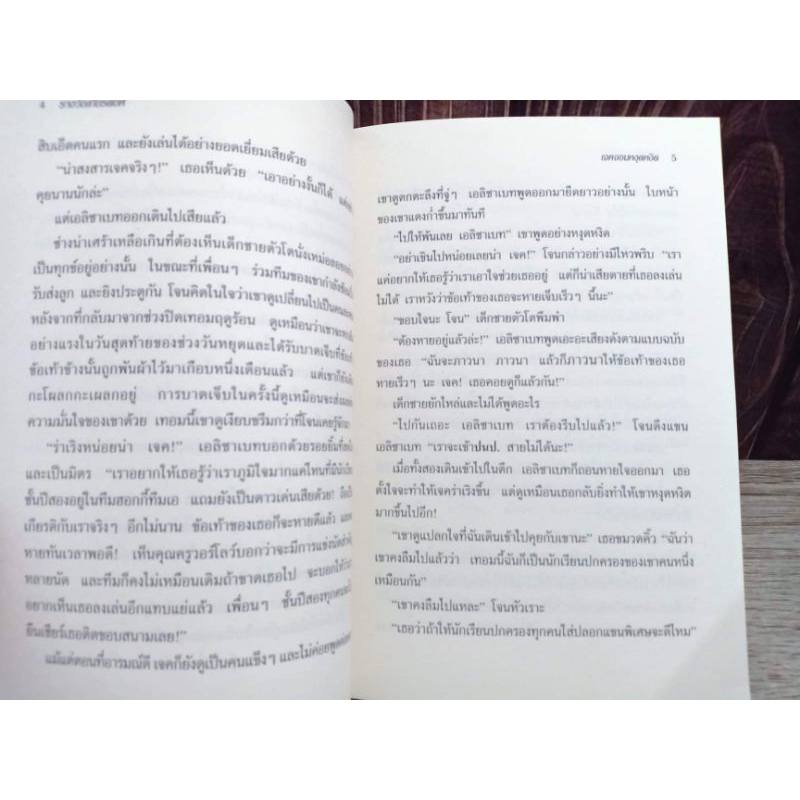 4
สิบเอ็ดคนแรก และยังเล่นได้อย่างยอดเยี่ยมเสียด้วย
“น่าสงสารเจคจริงๆ!” เธอเห็นด้วย “เอาอย่างงั้นก็ได้
คุยนานนักล่ะ”
แต่เอลิซาเบทออกเดินไปเสียแล้ว
ช่างน่าเศร้าเหลือเกินที่ต้องเห็นเด็กชายตัวโตนั่งเหม่อ
เป็นทุกข์อยู่อย่างนั้น ในขณะที่เพื่อนๆ ร่วมทีมของเขากำลัง
รับส่งลูก และยิงประตูกัน โจนคิดในใจว่าเขาดูเปลี่ยนไปเป็นคนละ
หลังจากที่กลับมาจากช่วงปิดเทอมฤดูร้อน ดูเหมือนว่าเขาจะ
อย่างแรงในวันสุดท้ายของช่วงวันหยุดและได้รับบาดเจ็บที่
ข้อเท้าข้างนั้นถูกพันผ้าไว้มาเกือบหนึ่งเดือนแล้ว แต่เขาก็ยัง
กะโผลกกะเผลกอยู่ การบาดเจ็บในครั้งนี้ดูเหมือนจะส่งผล
ความมั่นใจของเขาด้วย เทอมนี้เขาดูเงียบขรึมกว่าที่โจนเคยรู้จัก
“ร่าเริงหน่อยน่า เจค!” เอลิซาเบทบอกด้วยรอยยิ้มที่
และเป็นมิตร “เราอยากให้เธอรู้ว่าเราภูมิใจมากแค่ไหนที่มีนักเรียน
ชั้นปีสองอยู่ในทีมฮอกกี้ทีมเอ แถมยังเป็นดาวเด่นเสียด้วย!
เกียรติกับเราจริงๆ อีกไม่นาน ข้อเท้าของเธอก็จะหายดีแล้ว
หายทันเวลาพอดี! เห็นคุณครูวอร์โลว์บอกว่าจะมีการแข่งนัดสำคัญ
หลายนัด และทีมก็คงไม่เหมือนเดิมถ้าขาดเธอไป จะบอกให้ว่า
อยากเห็นเธอลงเล่นอีกแทบแย่แล้ว เพื่อนๆ ชั้นปีสองทุกคน
ยืนเชียร์เธอติดขอบสนามเลย!”
แม้แต่ตอนที่อารมณ์ดี เจคก็ยังดูเป็นคนแข็งๆ และไม่ค่อยพูด
เจคจอมหงุดหงิด 5
เขาดูตกตะลึงที่จู่ๆ เอลิซาเบทพูดออกมายืดยาวอย่างนั้น ใบหน้า
ของเขาแดงก่ำขึ้นมาทันที
“ไปให้พ้นเลย เอลิซาเบท” เขาพูดอย่างหงุดหงิด
“อย่าเขินไปหน่อยเลยน่า เจค!” โจนกล่าวอย่างมีไหวพริบ “เรา
แค่อยากให้เธอรู้ว่าเราเอาใจช่วยเธออยู่ แต่ก็น่าเสียดายที่เธอลงเล่น
ไม่ได้ เราหวังว่าข้อเท้าของเธอจะหายเจ็บเร็วๆ นี้นะ”
“ขอบใจนะ โจน” เด็กชายตัวโตพึมพำ
“ต้องหายอยู่แล้วล่ะ!” เอลิซาเบทพูดเอะอะเสียงดังตามแบบฉบับ
ของเธอ “ฉันจะภาวนา ภาวนา แล้วก็ภาวนาให้ข้อเท้าของเธอ
หายเร็วๆ นะ เจค! เธอคอยดูก็แล้วกัน!”
เด็กชายยักไหล่และไม่ได้พูดอะไร
“ไปกันเถอะ เอลิซาเบท เราต้องรีบไปแล้ว!” โจนดึงแขน
เอลิซาเบท “เราจะเข้าปนป. สายไม่ได้นะ!”
เมื่อทั้งสองเดินเข้าไปในตึก เอลิซาเบทก็ถอนหายใจออกมา เธอ
ตั้งใจจะทำให้เจคร่าเริงขึ้น แต่ดูเหมือนเธอกลับยิ่งทำให้เขาหงุดหงิด
มากขึ้นไปอีก!
“เขาดูแปลกใจที่ฉันเดินเข้าไปคุยกับเขานะ” เธอขมวดคิ้ว “ฉันว่า
เขาคงลืมไปแล้วว่า เทอมนี้ฉันก็เป็นนักเรียนปกครองของเขาคนหนึ่ง
เหมือนกัน”
“เขาคงลืมไปแหละ” โจนหัวเราะ
“เธอว่าถ้าให้นักเรียนปกครองทุกคนใส่ปลอกแขนพิเศษจะดีไหม”